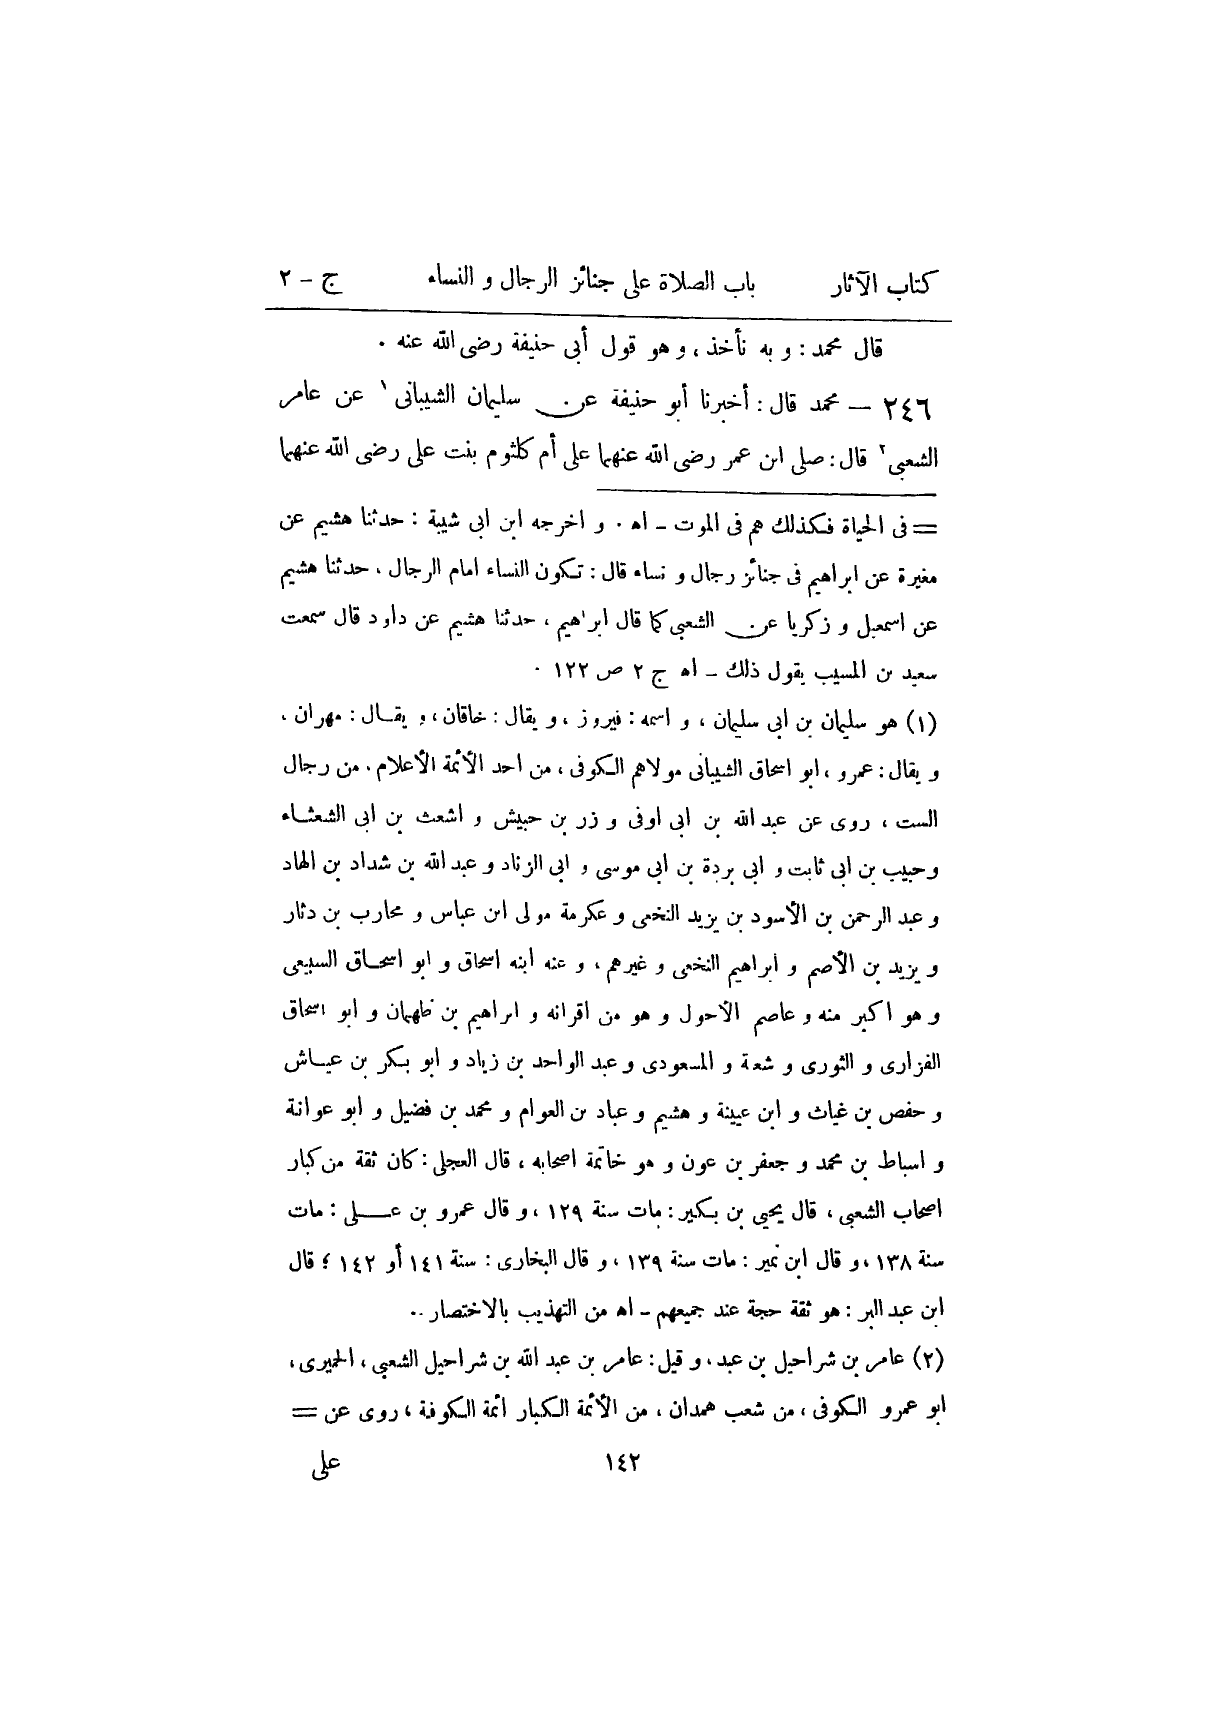 كتاب الآثار باب الصلاة على جنائز الرجال و النساء ج - ٢
قال محمد : و به نأخذ ، و هو قول أبى حنيفة رضى الله عنه .
٢٤٦ – محمد قال : أخبرنا أبو حنيفة عن سليمان الشيبانى ١ عن عامر
الشعبى ٢ قال : صلى ابن عمر رضى الله عنهما على أم كلثوم بنت على رضى الله عنهما
= فى الحياة فكذلك هم فى الموت - اه . و اخرجه ابن ابى شيبة : حدثنا هشيم عن
مغيرة عن ابراهيم فى جنائز رجال و نساء قال : تكون النساء امام الرجال ، حدثنا هشيم
عن اسمعيل و زكريا عن الشعبى كما قال ابراهيم ، حدثنا هشيم عن داود قال سمعت
سعيد بن المسيب يقول ذلك - اه ج ٢ ص ١٢٢ .
(١) هو سليمان بن ابى سليمان ، و اسمه : فيروز ، و يقال : خاقان ، و يقال : مهران ،
و يقال : عمرو ، ابو اسحاق الشيبانى مولاهم الكوفى ، من احد الأئمة الأعلام . من رجال
الست ، روى عن عبد الله بن ابى اوفى و زر بن حبيش و اشعث بن ابى الشعثاء
و حبيب بن ابى ثابت و ابى بردة بن ابى موسى و ابى الزناد و عبد الله بن شداد بن الهاد
و عبد الرحمن بن الأسود بن يزيد النخعى و عكرمة مولى ابن عباس و محارب بن دثار
و يزيد بن الأصم و ابراهيم النخعى و غيرهم ، و عنه ابنه اسحاق و ابو اسحاق السبيعى
و هو اكبر منه و عاصم الأحول و هو من اقرانه و ابراهيم بن طهمان و ابو اسحاق
الفزارى و الثورى و شعبة و المسعودى و عبد الواحد بن زياد و ابو بكر بن عياش
و حفص بن غياث و ابن عيينة و هشيم و عباد بن العوام و محمد بن فضيل و ابو عوانة
و اسباط بن محمد و جعفر بن عون و هو خاتمة اصحابه ، قال العجلى : كان ثقة من كبار
اصحاب الشعبى ، قال يحيى بن بكير : مات سنة ١٢٩ ، و قال عمرو بن على : مات
سنة ١٣٨ ، و قال ابن نمير : مات سنة ١٣٩ ، و قال البخارى : سنة ١٤١ أو ١٤٢ ؛ قال
ابن عبد البر : هو ثقة حجة عند جميعهم - اه من التهذيب بالاختصار ..
(٢) عامر بن شراحيل بن عبد ، و قيل : عامر بن عبد الله بن شراحيل الشعبى ، الحميرى ،
ابو عمرو الكوفى ، من شعب همدان ، من الأئمة الكبار ائمة الكوفة ، روى عن =
١٤٢ على